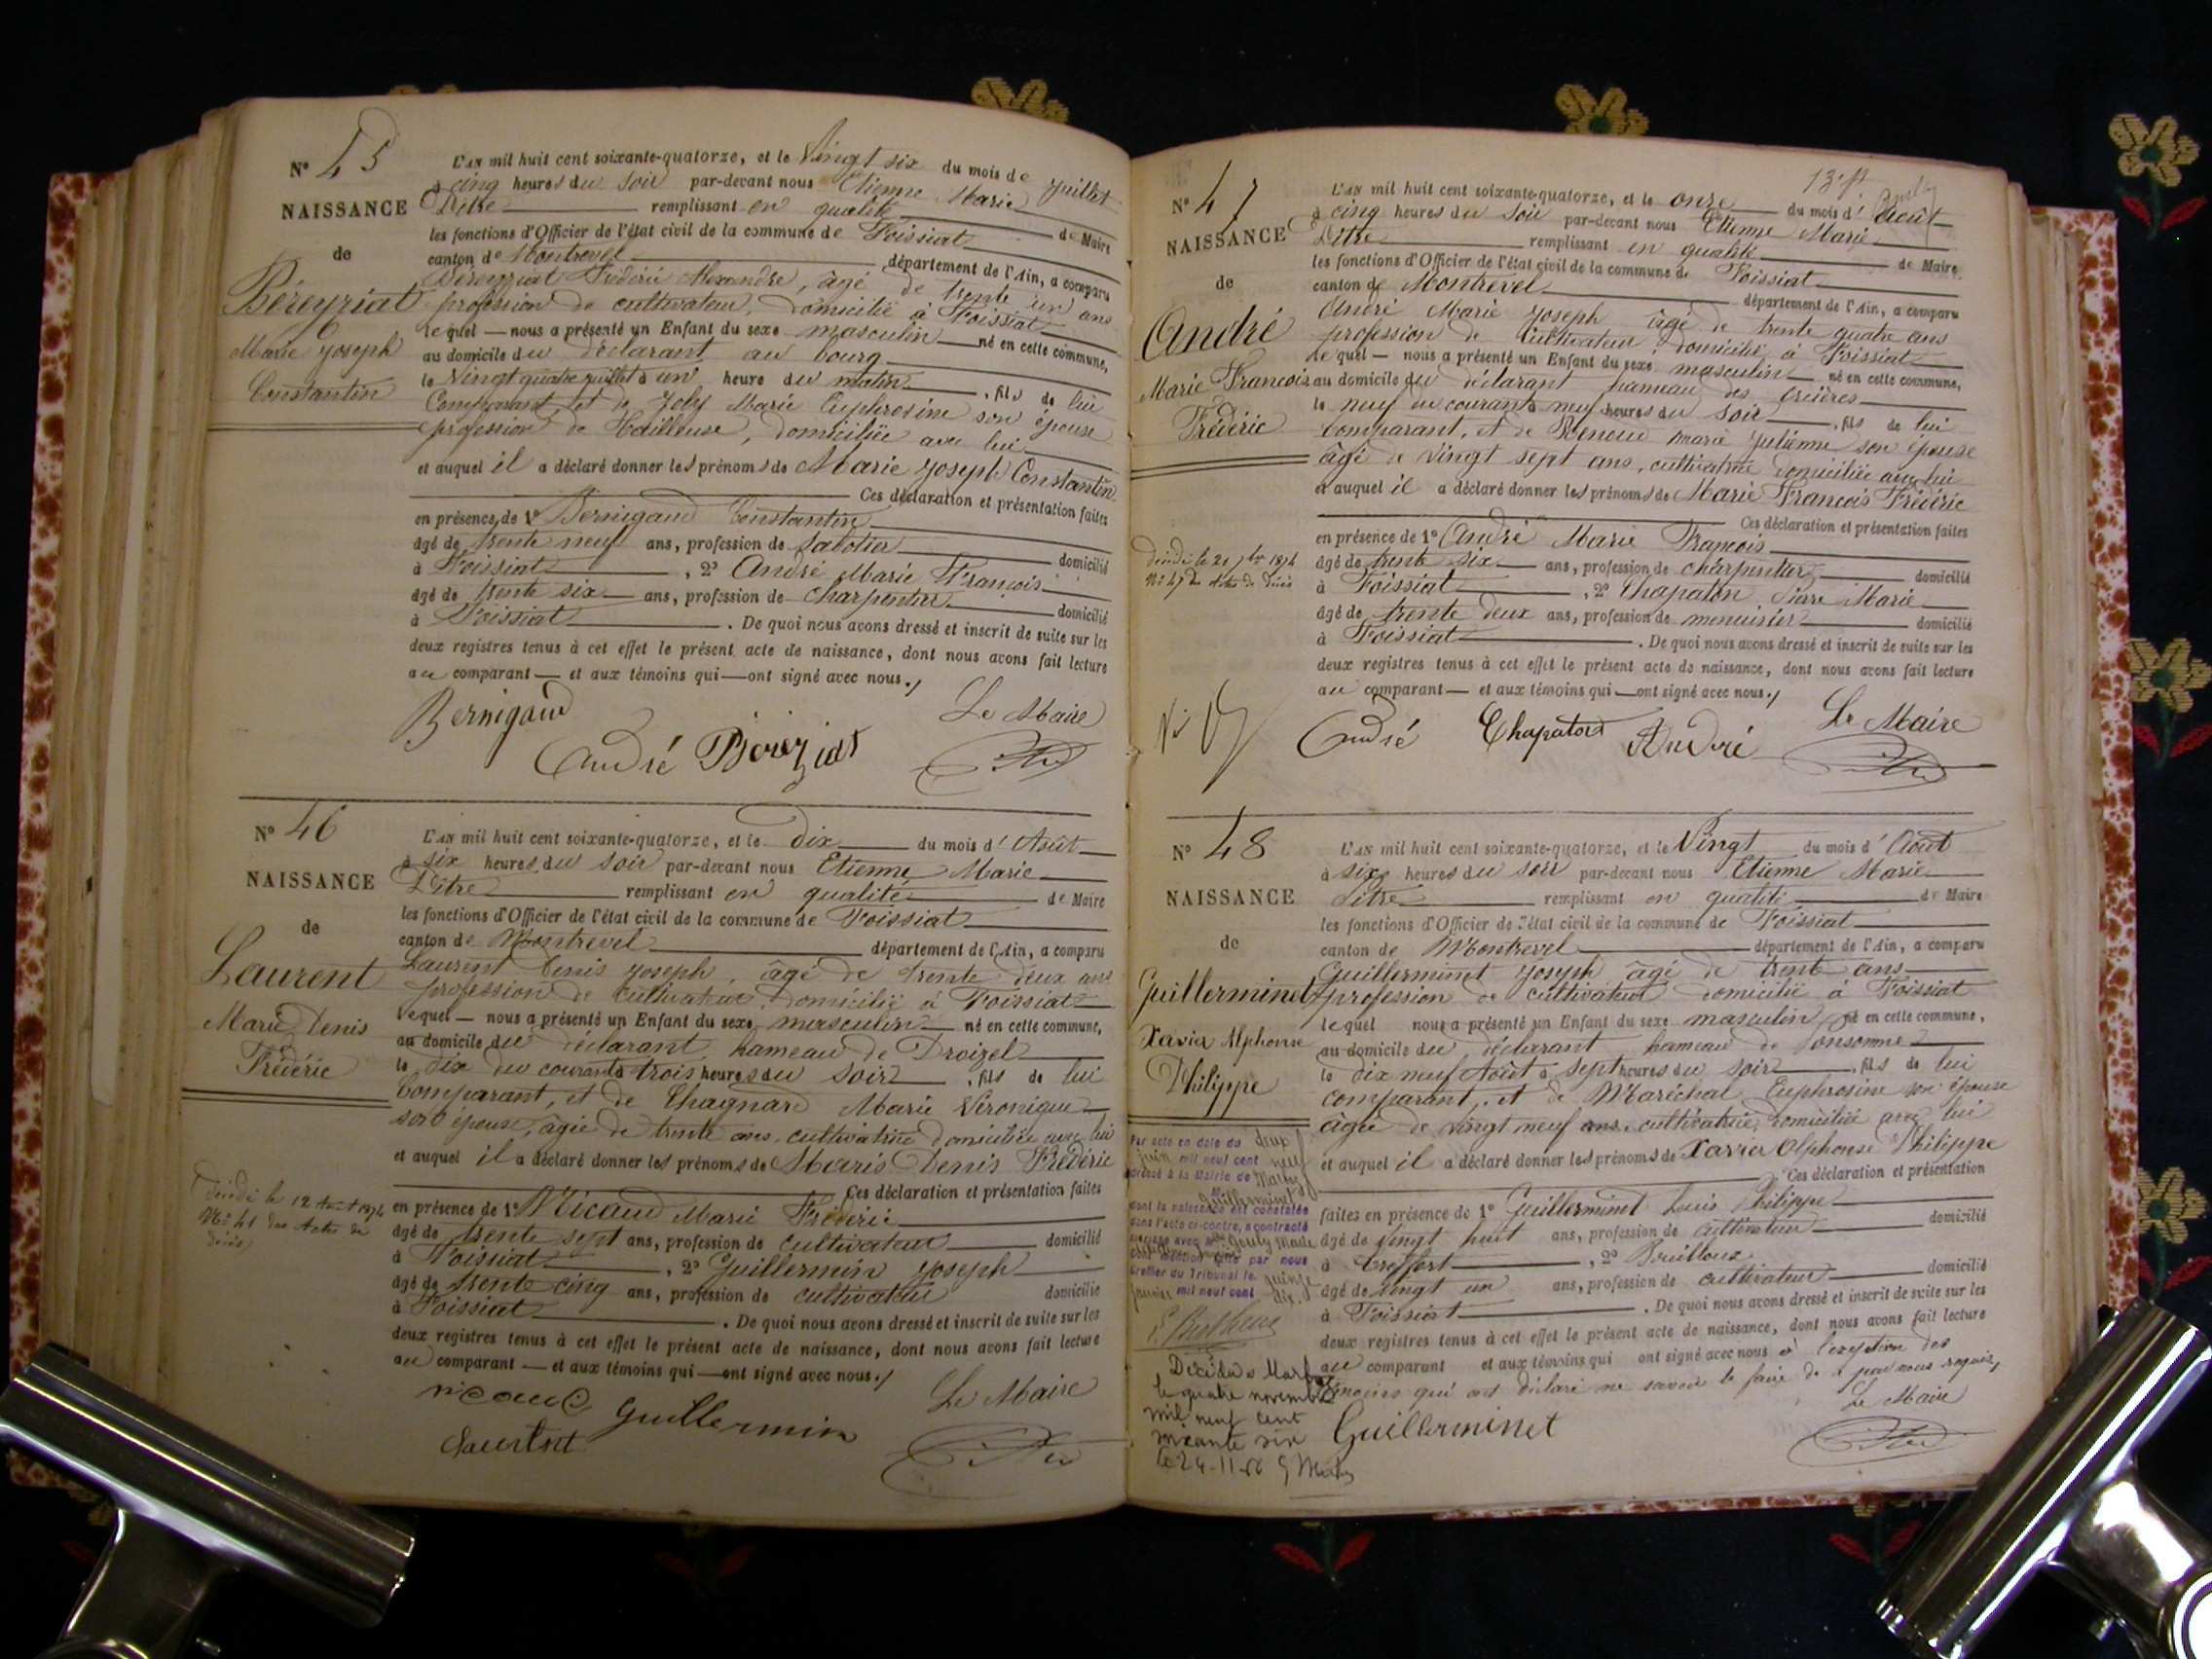 N° 45
NAISSANCE
de
Béreyziat
Marie Joseph
Constantin
L'AN mil huit cent soixante-quatorze, et le Vingt six du mois de Juillet
à cinq heures du soir par-devant nous Etienne Marie
Pitre remplissant en qualité de Maire
les fonctions d'Officier de l'état civil de la commune de Foissiat
canton de Montrevel département de l'Ain, a comparu
Béreyziat Frédéric Alexandre, âgé de trente un ans
profession de cultivateur, domicilié à Foissiat
lequel — nous a présenté un Enfant du sexe masculin né en cette commune,
au domicile du déclarant au bourg
le Vingt quatre juillet à un heure du matin, fils de lui
Comparant, et de Joly Marie Euphrosine son épouse
profession de Tailleuse, domiciliée avec lui
et auquel il a déclaré donner les prénoms de Marie Joseph Constantin
Ces déclaration et présentation faites
en présence de 1° Bernigaud Constantin
âgé de trente neuf ans, profession de sabotier domicilié
à Foissiat, 2° André Marie François
âgé de trente six ans, profession de charpentier domicilié
à Foissiat. De quoi nous avons dressé et inscrit de suite sur les
deux registres tenus à cet effet le présent acte de naissance, dont nous avons fait lecture
au comparant — et aux témoins qui — ont signé avec nous./
Bernigaud
Le Maire
André Béreziat
N° 46
NAISSANCE
de
Laurent
Marie Denis
Frédéric
décédé le 12 Août 1874
N° 41 des Actes de
décès
L'AN mil huit cent soixante-quatorze, et le dix du mois d'Août
à six heures du soir par-devant nous Etienne Marie
Pitre remplissant en qualité de Maire
les fonctions d'Officier de l'état civil de la commune de Foissiat
canton de Montrevel département de l'Ain, a comparu
Laurent Denis Joseph, âgé de trente deux ans
profession de cultivateur, domicilié à Foissiat
lequel — nous a présenté un Enfant du sexe masculin né en cette commune,
au domicile du déclarant, hameau de Droizel
le dix du courant à trois heures du soir, fils de lui
Comparant, et de Chagnard Marie Véronique
son épouse, âgée de trente ans, cultivatrice domiciliée avec lui
et auquel il a déclaré donner les prénoms de Marie Denis Frédéric
Ces déclaration et présentation faites
en présence de 1° Nicaud Marie Frédéric
âgé de trente sept ans, profession de cultivateur domicilié
à Foissiat, 2° Guillermin Joseph
âgé de trente cinq ans, profession de cultivateur domicilié
à Foissiat. De quoi nous avons dressé et inscrit de suite sur les
deux registres tenus à cet effet le présent acte de naissance, dont nous avons fait lecture
au comparant — et aux témoins qui — ont signé avec nous./
nicaud Guillermin
Le Maire
Laurent
N° 47
NAISSANCE
de
André
Marie François
Frédéric
décédé le 21 7bre 1874
N° 47 des Actes de décès
L'AN mil huit cent soixante-quatorze, et le onze du mois d'Août
à cinq heures du soir par-devant nous Etienne Marie
Pitre remplissant en qualité de Maire
les fonctions d'Officier de l'état civil de la commune de Foissiat
canton de Montrevel département de l'Ain, a comparu
André Marie Joseph âgé de trente quatre ans
profession de Cultivateur domicilié à Foissiat
lequel — nous a présenté un Enfant du sexe masculin né en cette commune,
au domicile du déclarant hameau des
le neuf du courant à neuf heures du soir, fils de lui
Comparant, et de Renoud Marie Julienne son épouse
âgé de vingt sept ans, cultivatrice domiciliée avec lui
et auquel il a déclaré donner les prénoms de Marie François Frédéric
Ces déclaration et présentation faites
en présence de 1° André Marie François
âgé de trente six ans, profession de charpentier domicilié
à Foissiat, 2° Chapaton Pierre Marie
âgé de trente deux ans, profession de menuisier domicilié
à Foissiat. De quoi nous avons dressé et inscrit de suite sur les
deux registres tenus à cet effet le présent acte de naissance, dont nous avons fait lecture
au comparant — et aux témoins qui — ont signé avec nous./
André Chapaton André
Le Maire
N° 48
NAISSANCE
de
Guillerminet
Xavier Alphonse
Philippe
Par acte en date du deux
juin mil neuf cent neuf
dressé à la Mairie de Marboz
M. Guillerminet
dont la naissance est constatée
dans l'acte ci-contre, a contracté
mariage avec Mlle Gouly Marie
mention faite par nous
Greffier du Tribunal le quinze
janvier mil neuf cent dix.
Décédé à Marboz
le quatre novembre
mil neuf cent
soixante six
le 24-11-66
L'AN mil huit cent soixante-quatorze, et le Vingt du mois d'Août
à six heures du soir par-devant nous Etienne Marie
Pitre remplissant en qualité de Maire
les fonctions d'Officier de l'état civil de la commune de Foissiat
canton de Montrevel département de l'Ain, a comparu
Guillerminet Joseph âgé de trente ans
profession de cultivateur domicilié à Foissiat
lequel nous a présenté un Enfant du sexe masculin né en cette commune,
au domicile du déclarant hameau de
le dix neuf Août à sept heures du soir, fils de lui
comparant, et de Maréchal Euphrosine son épouse
âgée de vingt neuf ans, cultivatrice, domiciliée avec lui
et auquel il a déclaré donner les prénoms de Xavier Alphonse Philippe
Ces déclaration et présentation
faites en présence de 1° Guillerminet Louis Philippe
âgé de vingt huit ans, profession de cultivateur domicilié
à Treffort, 2°
âgé de vingt un ans, profession de cultivateur domicilié
à Foissiat. De quoi nous avons dressé et inscrit de suite sur les
deux registres tenus à cet effet le présent acte de naissance, dont nous avons fait lecture
au comparant et aux témoins qui ont signé avec nous à l'exception des
témoins qui ont déclaré ne savoir le faire de ce par nous requis,
Le Maire
Guillerminet